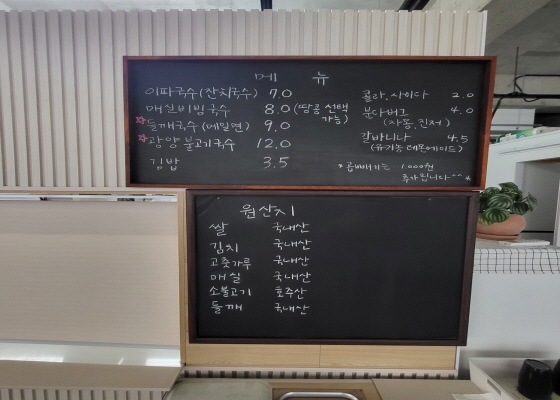 메 뉴
이파국수(잔치국수) 7.0
매실비빔국수 8.0 (땅콩 선택 가능)
☆들깨국수(메밀면) 9.0
☆광양불고기국수 12.0
김밥 3.5
콜라, 사이다 2.0
분다버그 4.0
(자몽, 진저)
갈바니나 4.5
(유기농 레몬에이드)
*곱빼기는 1000원
추가됩니다^^*
원산지
쌀 국내산
김치 국내산
고춧가루 국내산
매실 국내산
소불고기 호주산
들깨 국내산